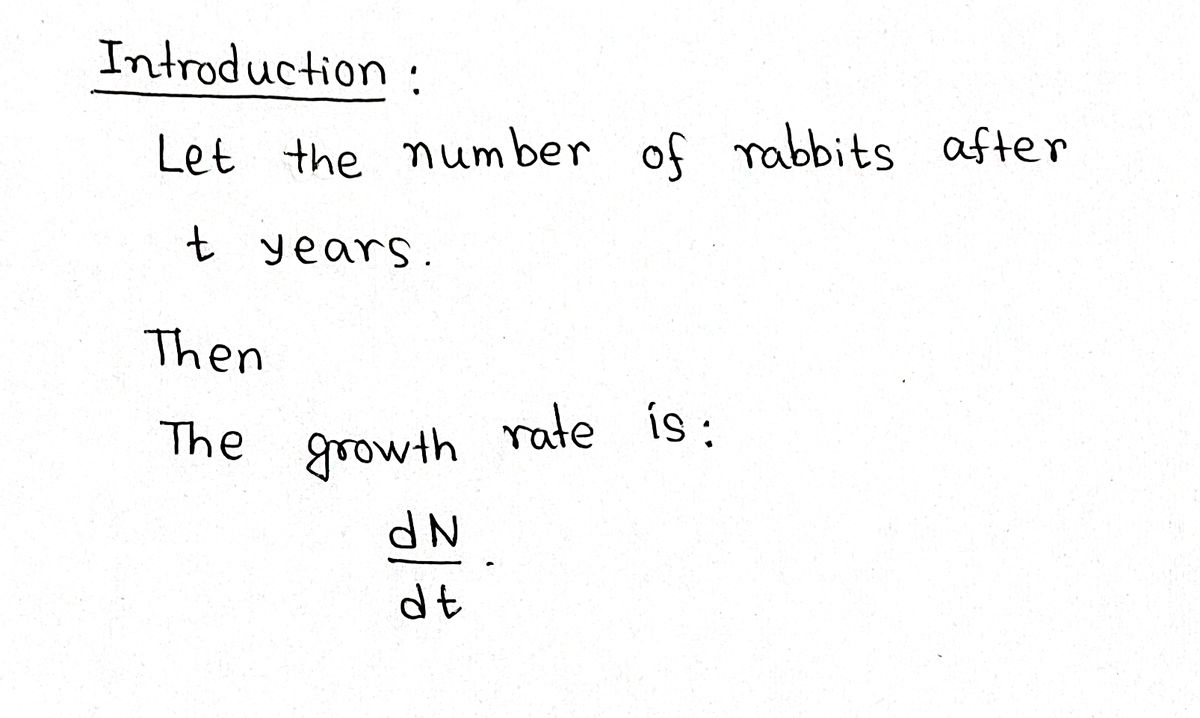 Introduction :
Let the number of rabbits after
t years.
Then
The growth rate is :
dN
dt .